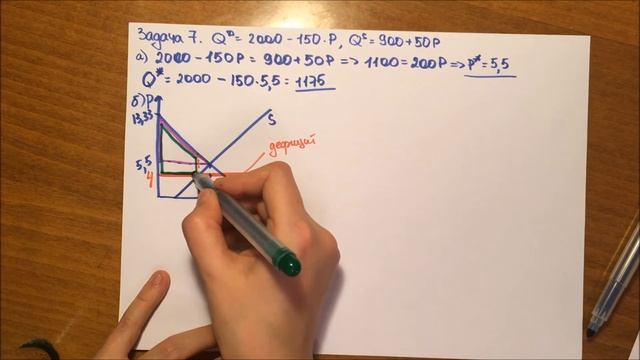 Задача 7. Qᴰ = 2000 - 150·P, Qˢ = 900 + 50P
а) 2000 - 150P = 900 + 50P => 1100 = 200P => P* = 5,5
Q* = 2000 - 150·5,5 = 1175
б) P
13,33
S
дефицит
5,5
4